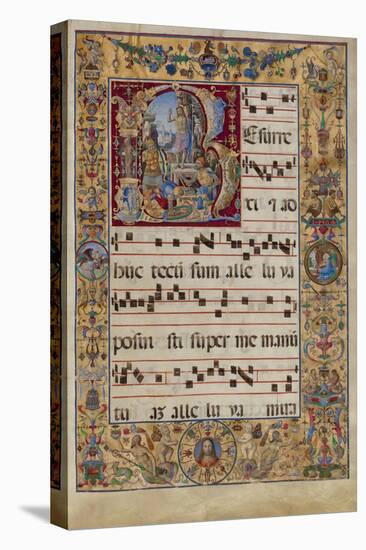 R esurre
xi 7 ad
huc tecu sum alle lu ya
posui sti super me manu
tu as alle lu ya mira